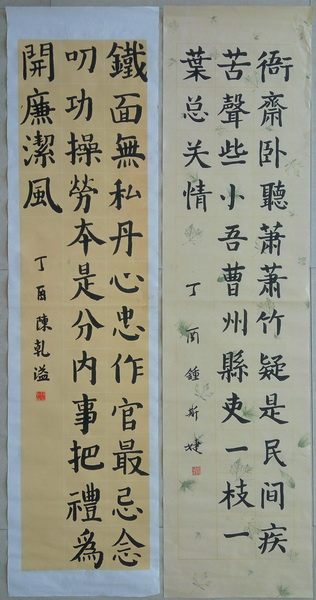 衙齋卧聽蕭蕭竹疑是民間疾
苦聲些小吾曹州縣吏一枝一
葉总关情
丁酉鍾斯婕
鐵面無私丹心忠作官最忌念
叨功操勞本是分内事把禮為
開廉潔風
丁酉陳乾溢